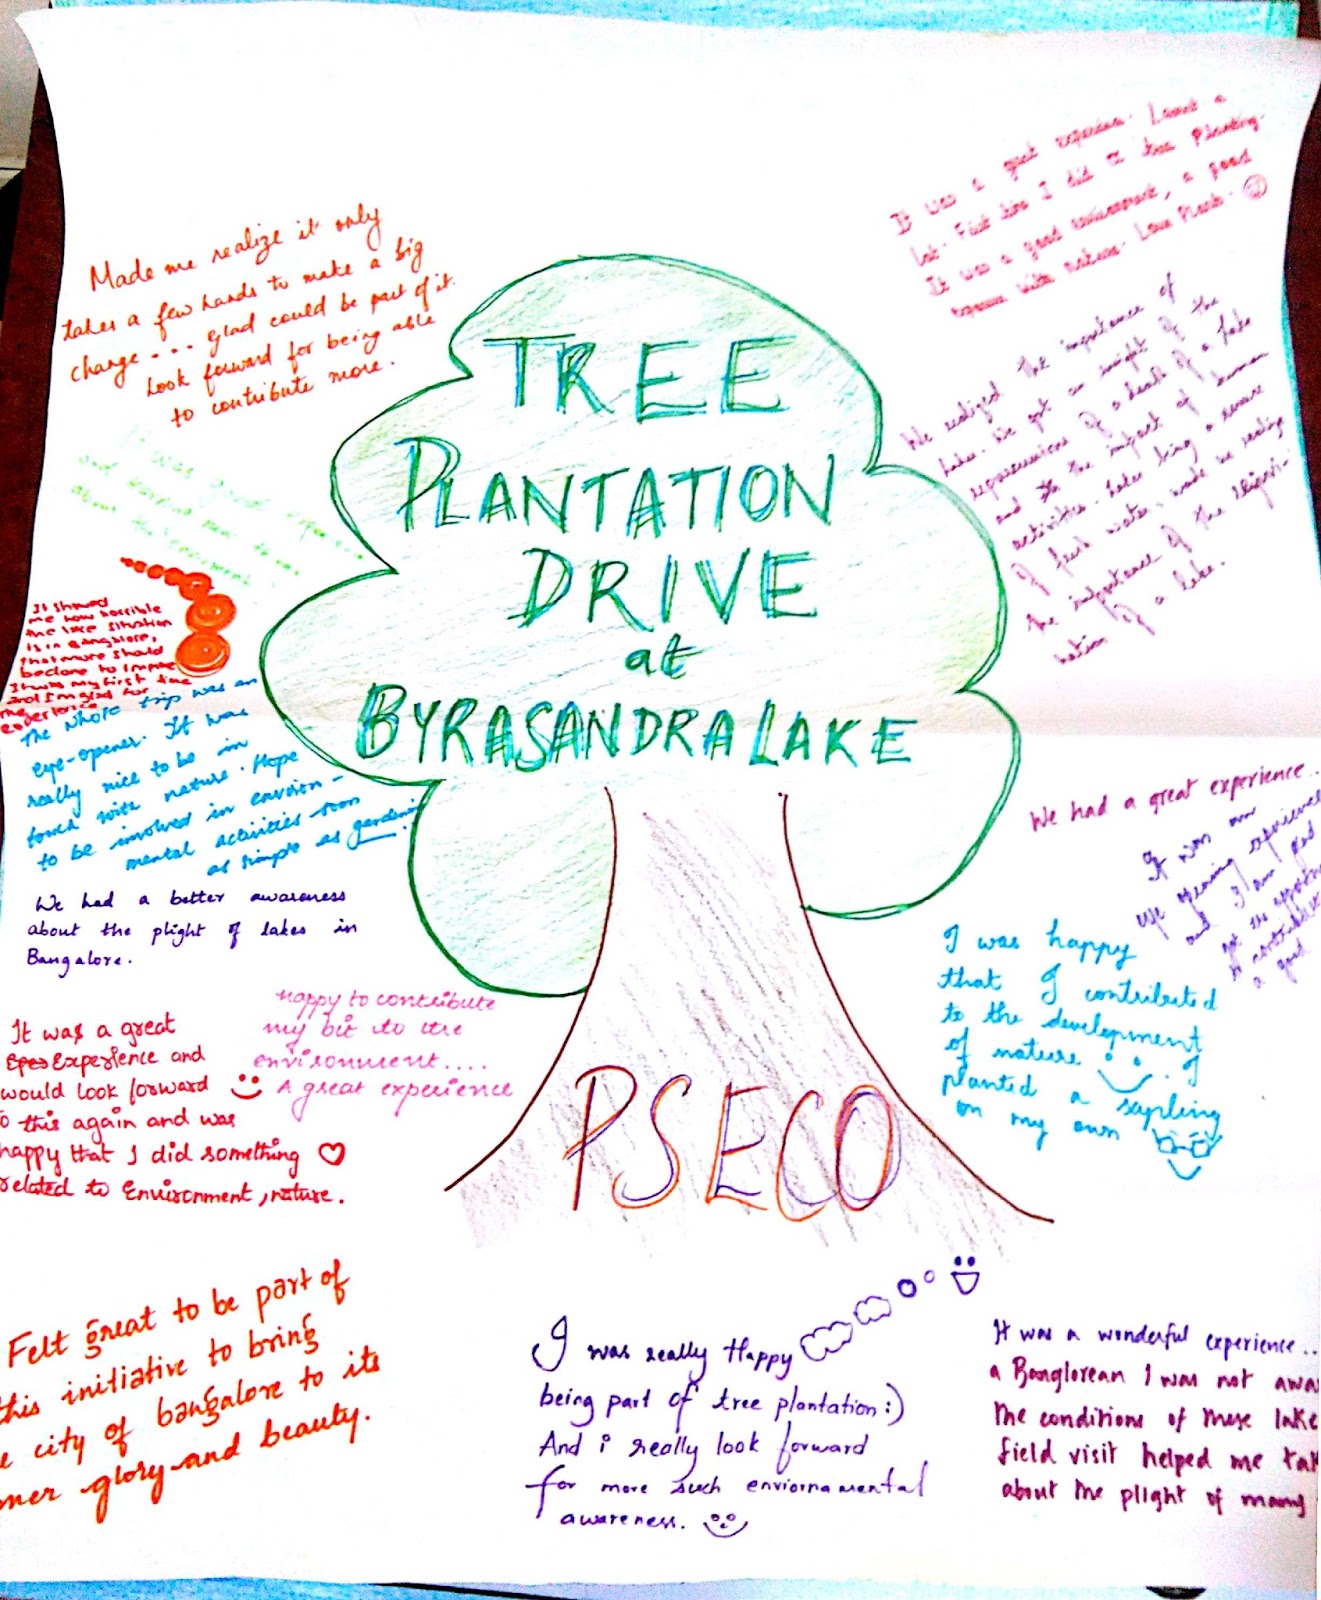 TREE
PLANTATION
DRIVE
at
BYRASANDRA LAKE
PSECO
Made me realize it only
takes a few hands to make a big
change... glad could be part of it.
Look forward for being able
to contribute more.
It was good
about the
It showed
me how horrible
the lake situation
is in Bangalore,
that more should
be done to
It was my first time
and I'm glad for
the
experience
the whole trip was an
eye-opener. It was
really nice to be in
touch with nature. Hope
to be involved in environ-
mental activities soon
as simple as gardening
We had a better awareness
about the plight of lakes in
Bangalore.
It was a great
Experience and
would look forward
to this again and was
happy that I did something
related to Environment, nature.
Happy to contribute
my bit to the
environment....
A great experience
Felt great to be part of
this initiative to bring
city of bangalore to its
glory and beauty.
It was a great Learnt a
lot. First time I did a tree Planting.
It was a good a good
with nature. Love Plants.
We realized the importance of
lakes. We got an insight of the
repercussions of a death of a lake
and the impact of human
activities. Lakes being a
of fresh water, made us realize
the importance of the
of a lake.
We had a great experience..
It was an
eye opening experience
and I am glad
got the
to contribute
a good
I was happy
that I contributed
to the development
of nature. I
planted a sapling
on my own
I was really Happy
being part of tree plantation :)
And i really look forward
for more such enviornamental
awareness.
It was a wonderful experience...
a Banglorean I was not
the conditions of these lake
field visit helped me
about the plight of many